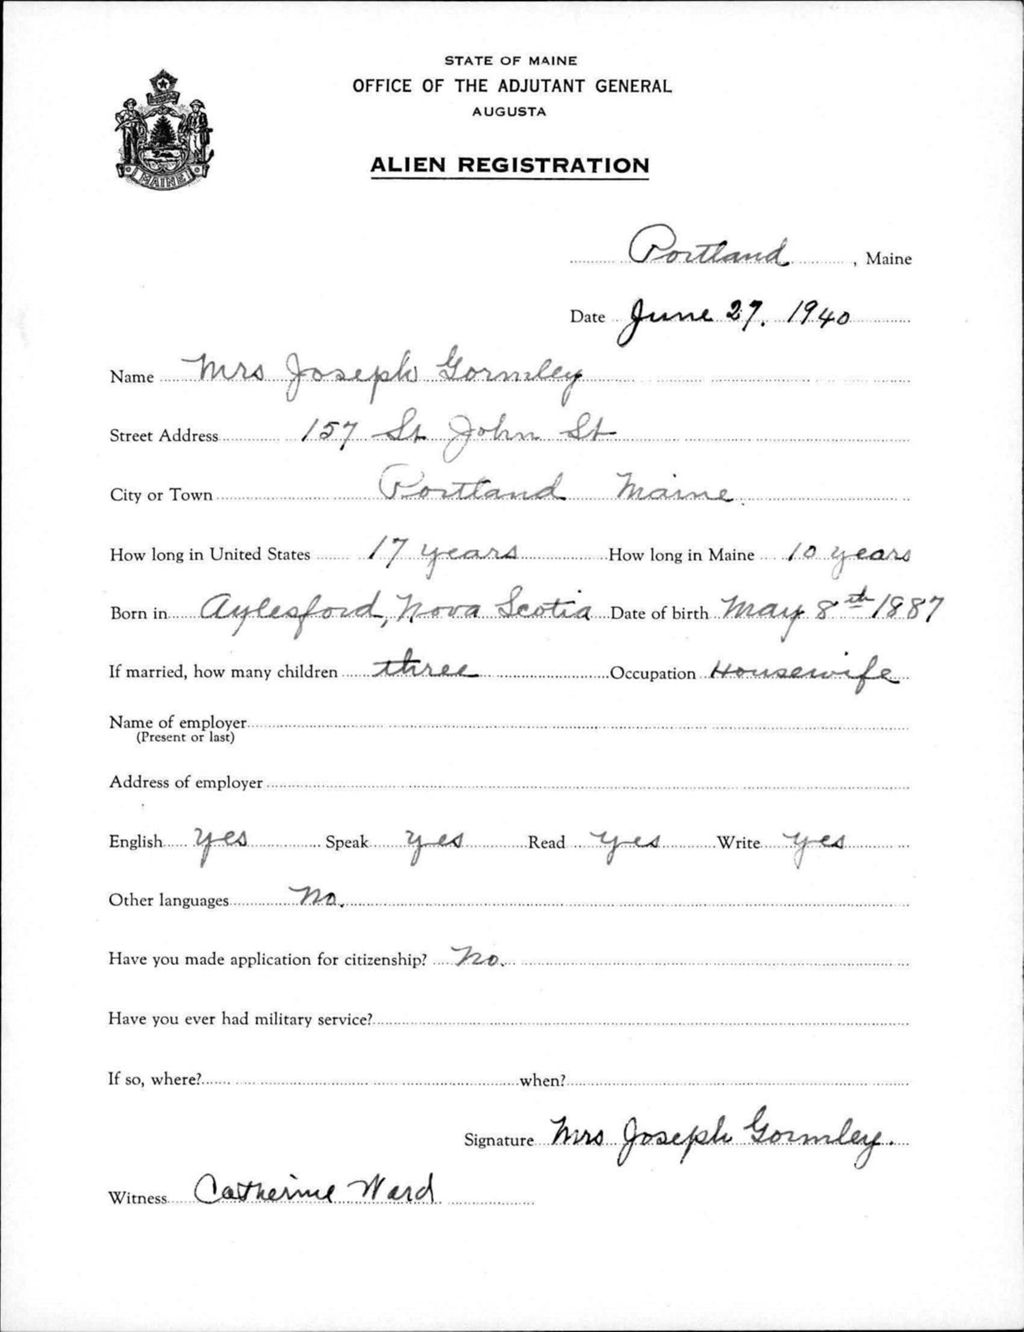 STATE OF MAINE
OFFICE OF THE ADJUTANT GENERAL
AUGUSTA
ALIEN REGISTRATION
MAINE
Portland, Maine
Date June 27, 1940
Name Mrs Joseph Gormley
Street Address 157 St John St
City or Town Portland Maine.
How long in United States 17 years How long in Maine 10 years
Born in Aylesford, Nova Scotia Date of birth May 8th 1887
If married, how many children three Occupation Housewife
Name of employer
(Present or last)
Address of employer
English yes Speak yes Read yes Write yes
Other languages No.
Have you made application for citizenship? No.
Have you ever had military service?
If so, where? when?
Signature Mrs Joseph Gormley.
Witness Catherine Ward